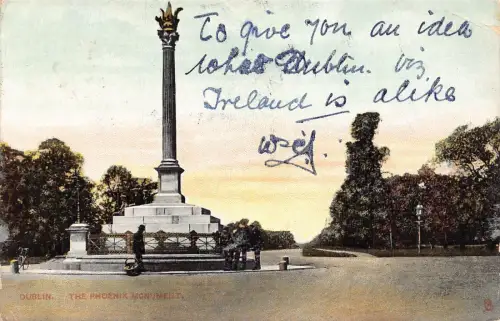 To give you an idea
what Dublin. viz
Ireland is alike
DUBLIN. THE PHOENIX MONUMENT.